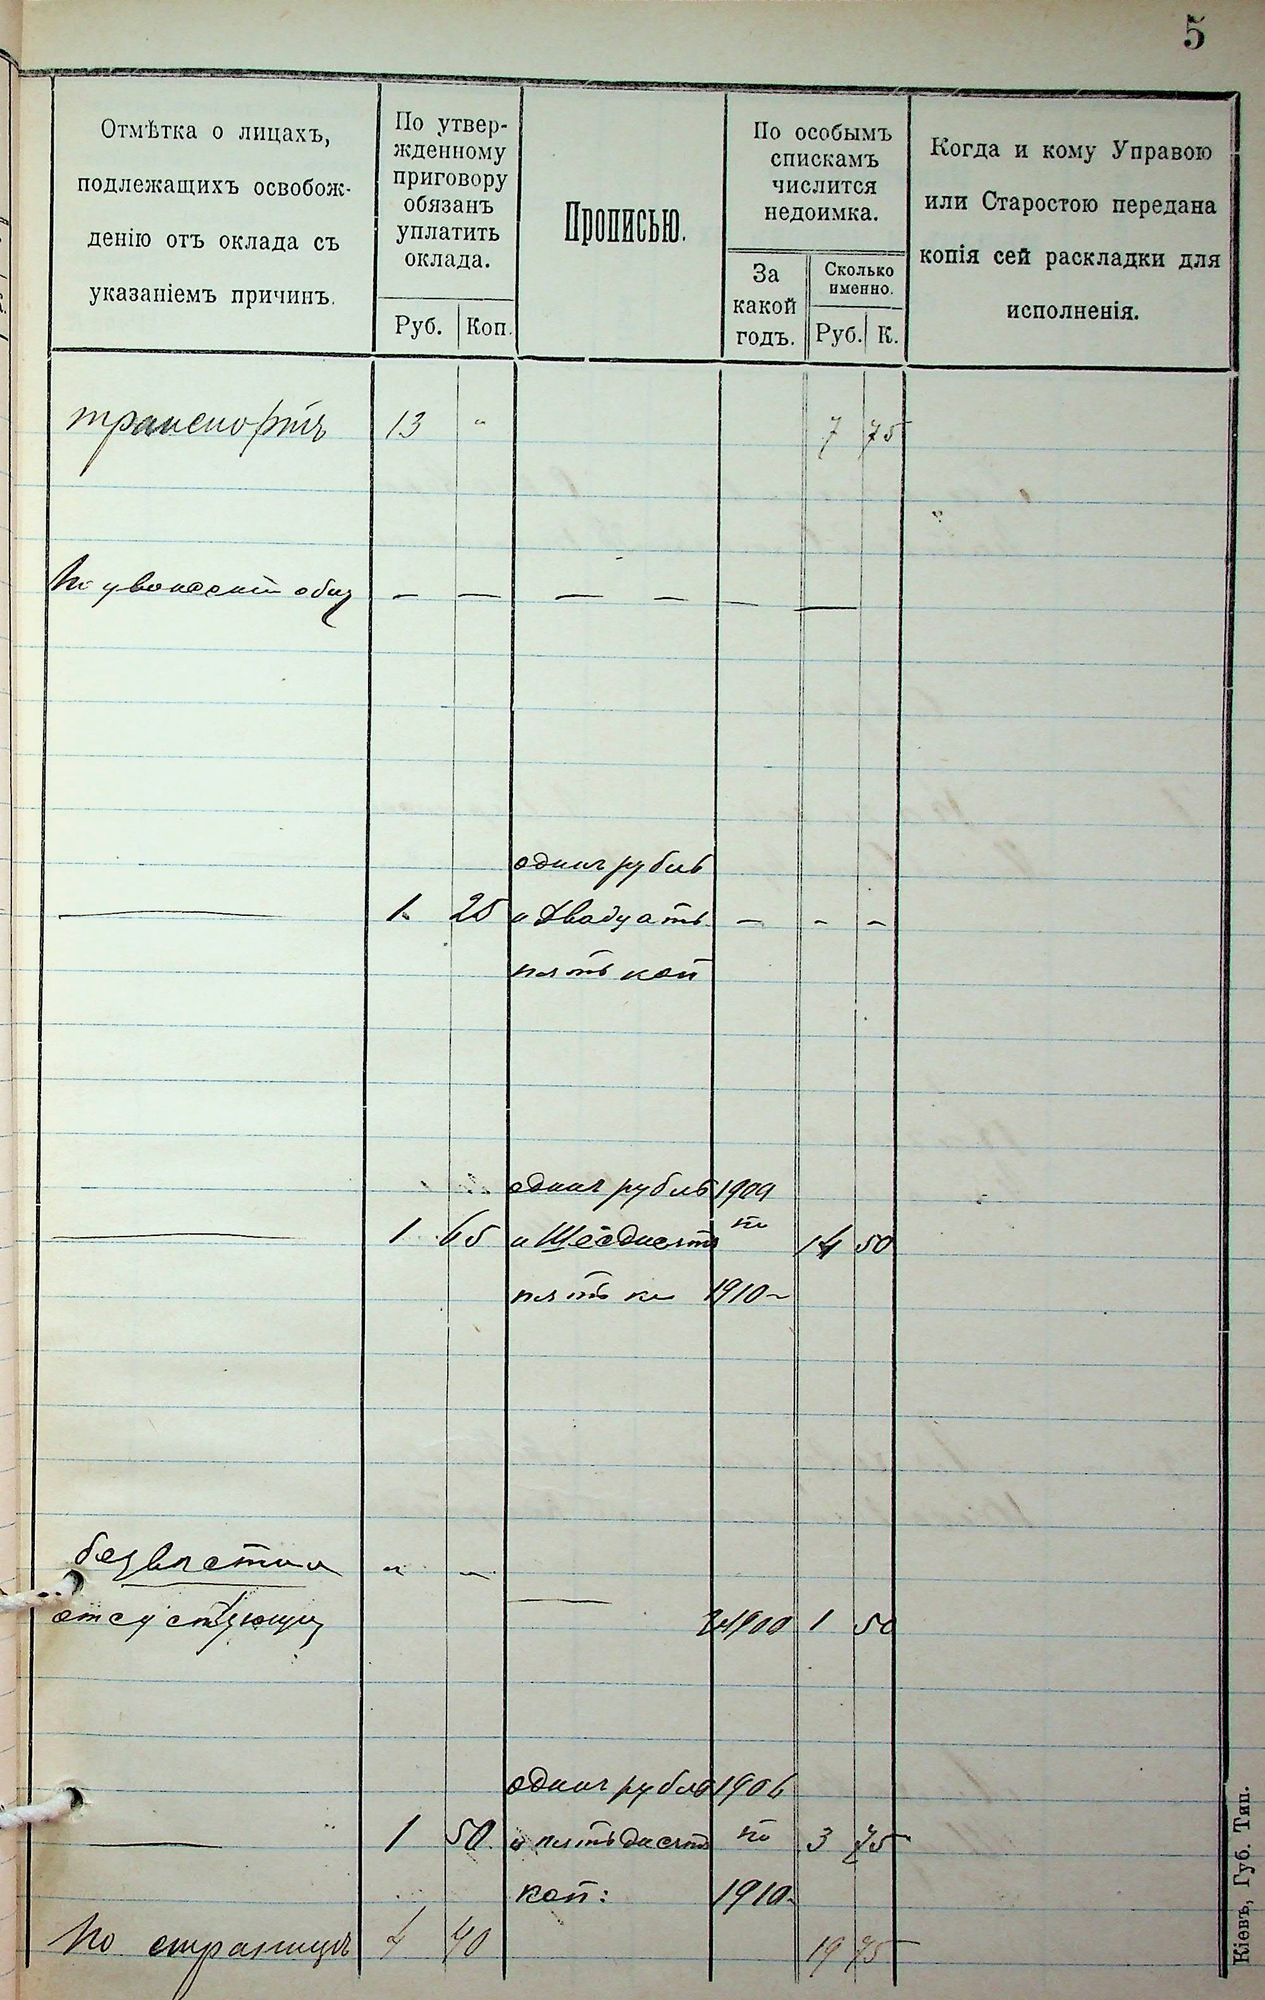 5
Отмѣтка о лицахъ,
подлежащихъ освобож-
денію отъ оклада съ
указаніемъ причинъ.
По утвер-
жденному
приговору
обязанъ
уплатить
оклада.
Руб. Коп.
Прописью.
По особымъ
спискамъ
числится
недоимка.
За
какой
годъ.
Сколько
именно.
Руб. К.
Когда и кому Управою
или Старостою передана
копія сей раскладки для
исполненія.
транспортъ 13 " 7 75
— — — — — —
одинъ рубль
— 1 25 и двадцать — - -
пять коп
одинъ рубль 1909
— 1 65 и Шесдисятъ по 14 50
пять к 1910
безвѣстно " —
отсуствующ — 1900 1 50
одинъ рубль 1906
— 1 50 и пятьдесятъ по 3 75
коп: 1910
По страницѣ 4 40 19 75
Кіевъ, Губ. Тип.